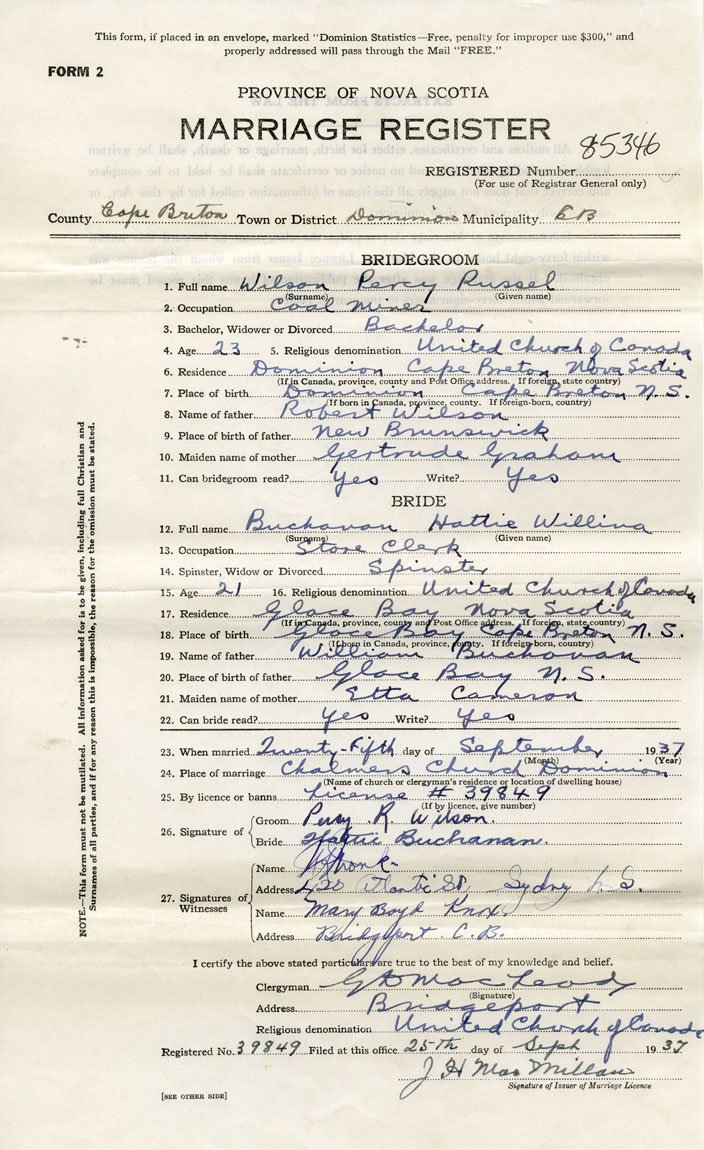 This form, if placed in an envelope, marked "Dominion Statistics—Free, penalty for improper use $300," and
properly addressed will pass through the Mail "FREE."
FORM 2
PROVINCE OF NOVA SCOTIA
MARRIAGE REGISTER
85346
REGISTERED Number
(For use of Registrar General only)
County Cape Breton Town or District Dominion Municipality CB
BRIDEGROOM
1. Full name Wilson Percy Russel
(Surname) (Given name)
2. Occupation Coal Miner
3. Bachelor, Widower or Divorced Bachelor
4. Age 23 5. Religious denomination United Church of Canada
6. Residence Dominion Cape Breton Nova Scotia
(If in Canada, province, county and Post Office address. If foreign, state country)
7. Place of birth Dominion Cape Breton N.S.
(If born in Canada, province, county. If foreign-born, country)
8. Name of father Robert Wilson
9. Place of birth of father New Brunswick
10. Maiden name of mother Gertrude Graham
11. Can bridegroom read? Yes Write? Yes
BRIDE
12. Full name Buchanan Hattie Willina
(Surname) (Given name)
13. Occupation Store Clerk
14. Spinster, Widow or Divorced Spinster
15. Age 21 16. Religious denomination United Church of Canada
17. Residence Glace Bay Nova Scotia
(If in Canada, province, county and Post Office address. If foreign, state country)
18. Place of birth Glace Bay Cape Breton N.S.
(If born in Canada, province, county. If foreign-born, country)
19. Name of father William Buchanan
20. Place of birth of father Glace Bay N.S.
21. Maiden name of mother Etta Cameron
22. Can bride read? Yes Write? Yes
23. When married Twenty-Fifth day of September 1937
(Month) (Year)
24. Place of marriage Chalmers Church Dominion
(Name of church or clergyman's residence or location of dwelling house)
25. By licence or banns License # 39849
(If by licence, give number)
26. Signature of
Groom Percy R. Wilson.
Bride Hattie Buchanan.
27. Signatures of Witnesses
Name
Address Atlantic St, Sydney N.S.
Name Mary Boyd Knox.
Address Bridgeport C.B.
I certify the above stated particulars are true to the best of my knowledge and belief.
Clergyman G D MacLeod
(Signature)
Address Bridgeport
Religious denomination United Church of Canada
Registered No. 39849 Filed at this office 25th day of Sept 1937
J H MacMillan
Signature of Issuer of Marriage Licence
[SEE OTHER SIDE]
NOTE.—This form must not be mutilated. All information asked for is to be given, including full Christian and
Surnames of all parties, and if for any reason this is impossible, the reason for the omission must be stated.